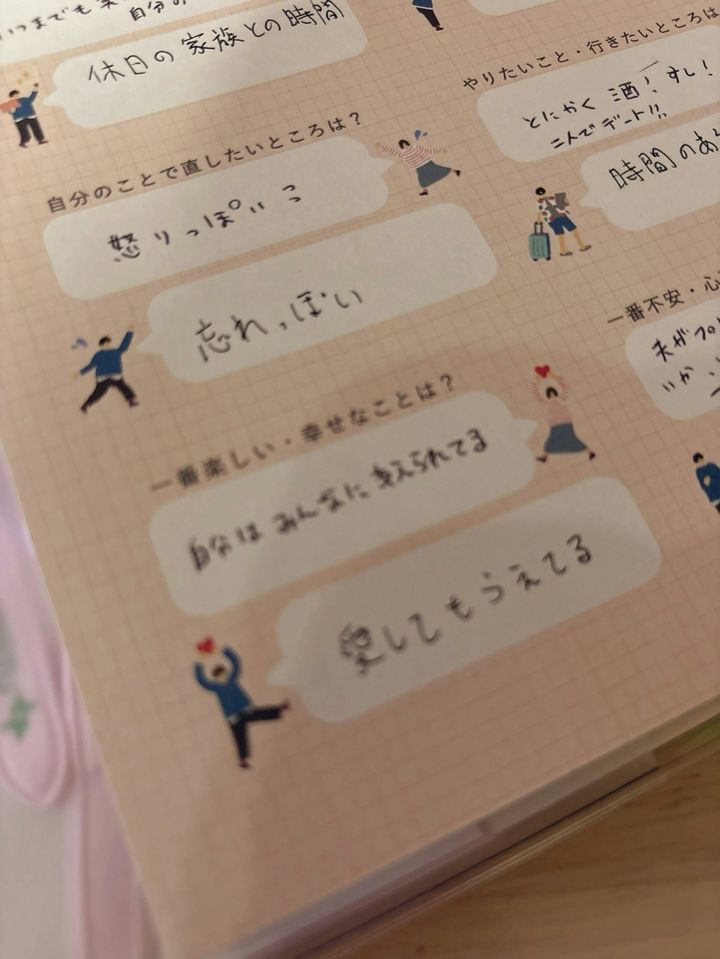 いつまでも
自分の
休日の家族との時間
自分のことで直したいところは?
怒りっぽいこ
忘れっぽい
一番楽しい・幸せなことは?
自分はみんなに支えられてる
愛してもらえてる
やりたいこと・行きたいところは
とにかく 酒! すし!
二人でデート!!
時間のあ
一番不安・心
夫がプロ
いか